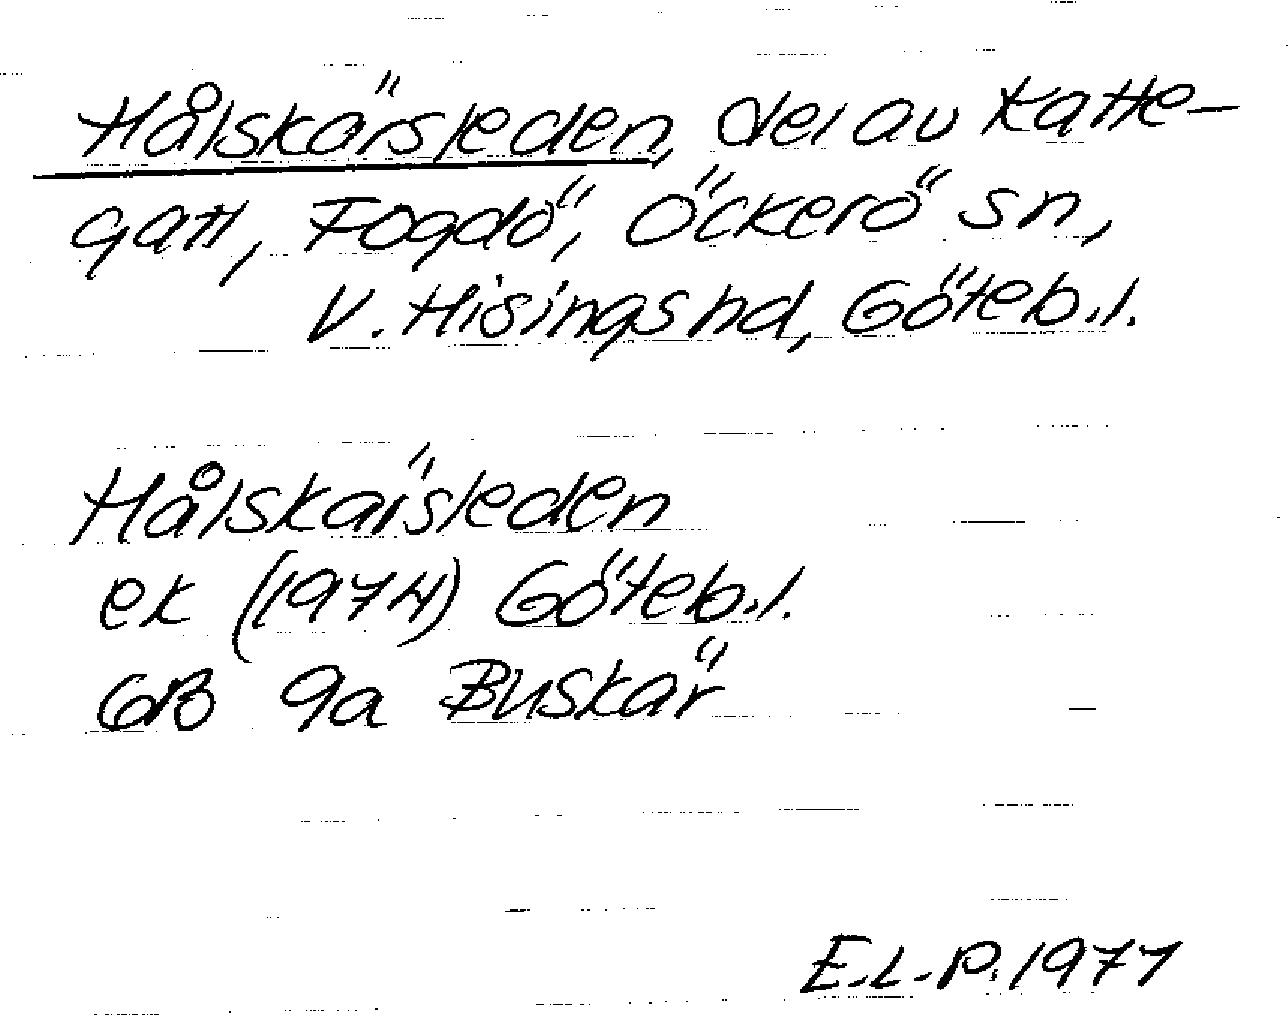 Hålskärsleden, del av Katte-
gatt, Fogdö, Öckerö sn,
V. Hisings hd, Göteb.l.
Hålskärsleden
ek (1974) Göteb.l.
6B 9a Buskär
E.L-P. 1977